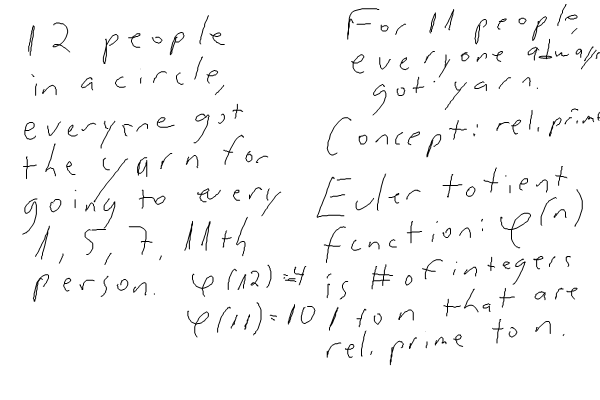 12 people
in a circle,
everyone got
the yarn for
going to every
1, 5, 7, 11th
person. φ(12)=4
φ(11)=10
For 11 people,
everyone always
got yarn.
Concept: rel. prime
Euler totient
function: φ(n)
is # of integers
1 to n that are
rel. prime to n.